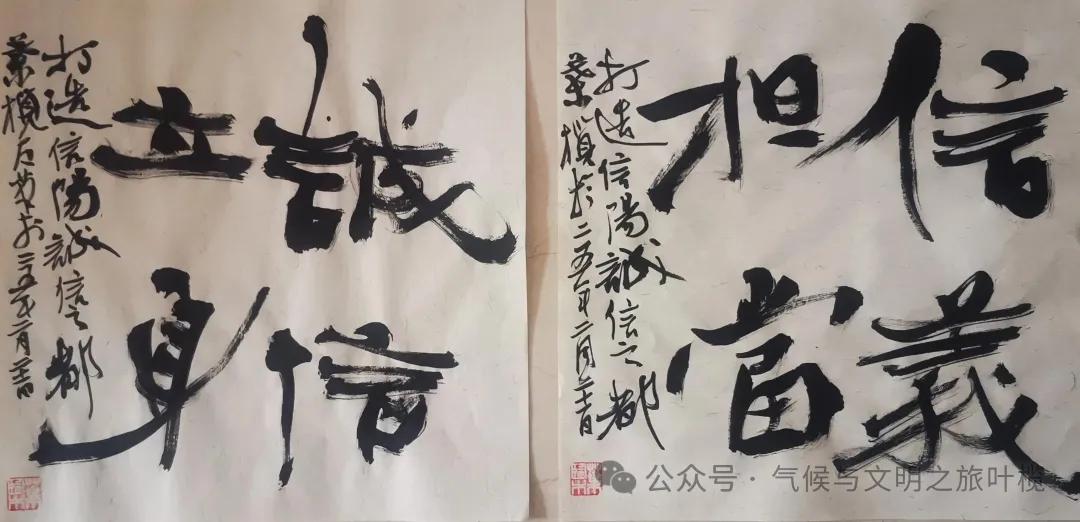 信義
担當
打造信陽誠信之都
葉榄於二五年二月
誠信
立身
打造信陽誠信之都
葉榄左笔於二五年二月
公众号 · 气候与文明之旅叶榄